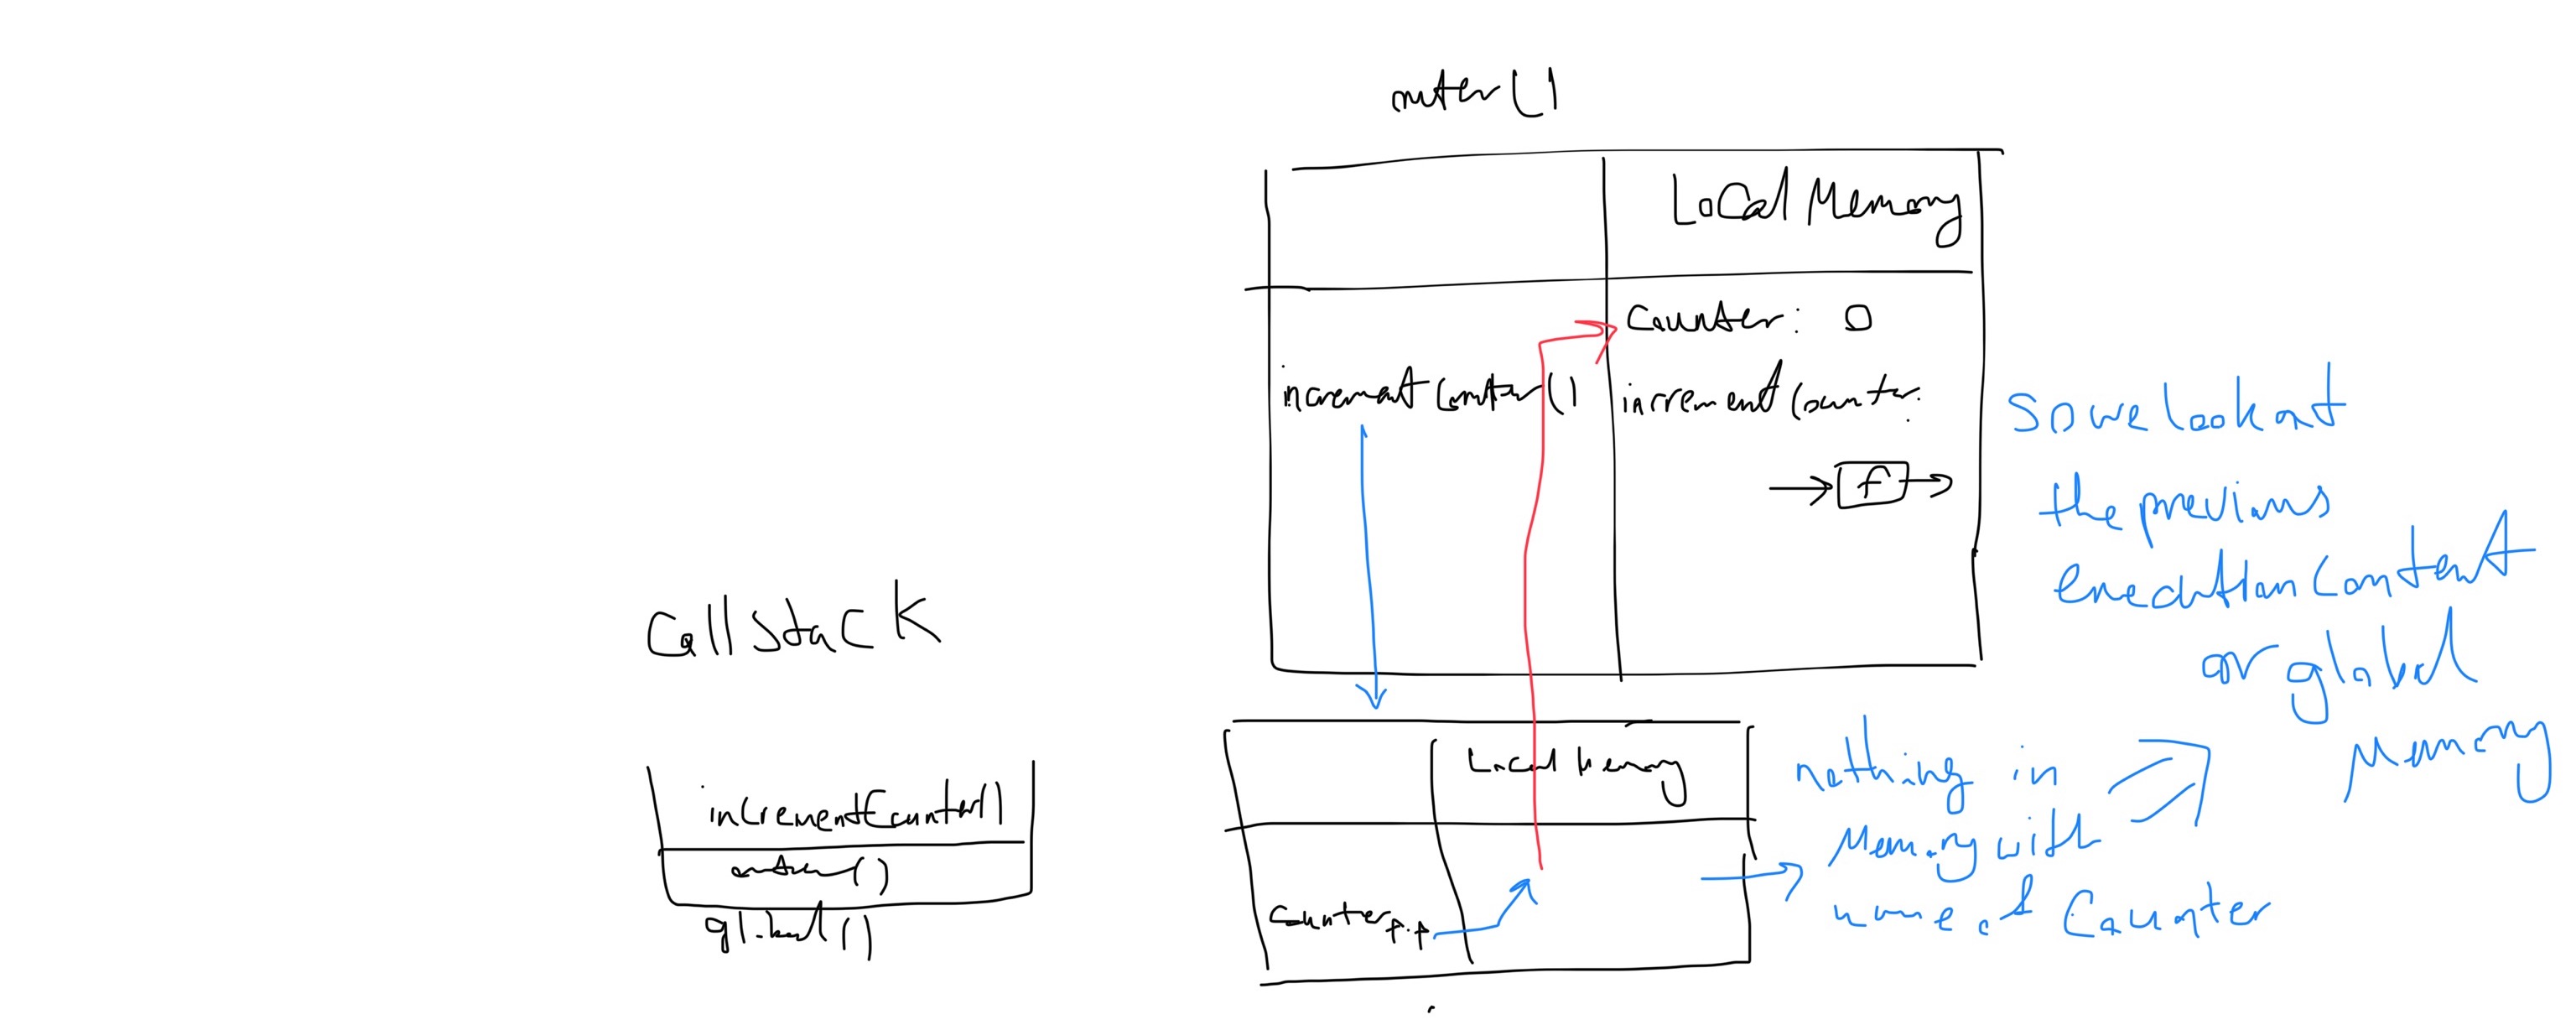 outer()
Local Memory
Counter: 0
incrementCounter()
incrementCounter:
f
So we look at
the previous
execution context
or global
Memory
Call Stack
incrementCounter()
outer()
global()
Local Memory
Counter++
nothing in
Memory with
name of Counter